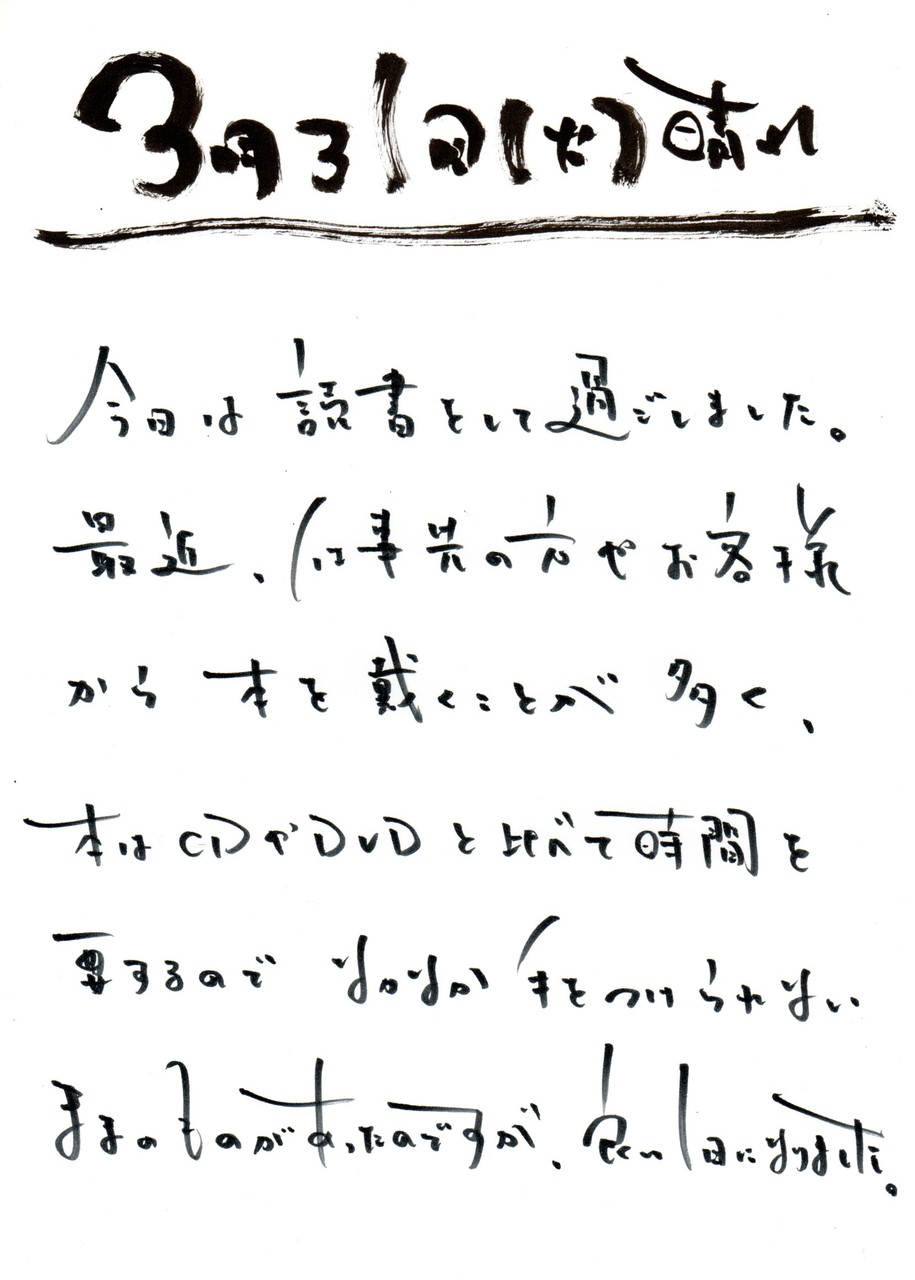 3月31日(火)晴れ
今日は読書をして過ごしました。
最近、仕事先の方やお客様
から本を戴くことが多く、
本はCDやDVDと比べて時間を
要するのでなかなか手をつけられない
ままのものがあったのですが、良い1日になりました。